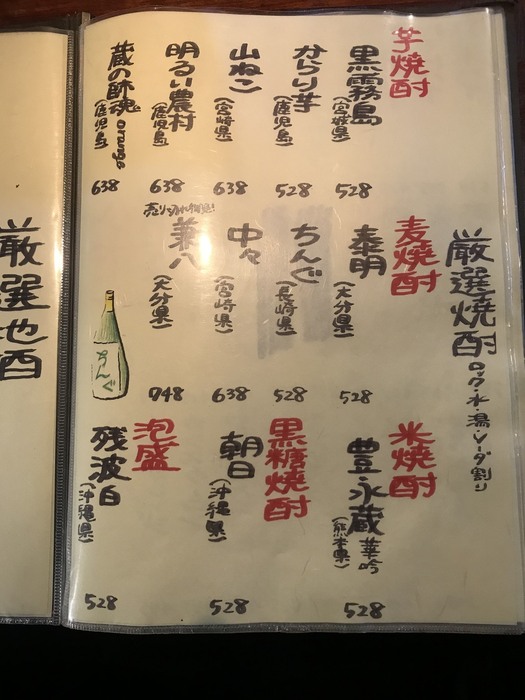 厳選焼酎 ロック・水・湯・ソーダ割り
芋焼酎
黒霧島(宮崎県)
528
からり芋(鹿児島)
528
山ねこ(宮崎県)
638
明るい農村(鹿児島)
638
蔵の師魂 orange(鹿児島)
638
麦焼酎
泰明(大分県)
528
ちんぐ(長崎県)
528
中々(宮崎県)
638
売り切れ御免!
兼八(大分県)
748
ちんぐ
米焼酎
豊永蔵 華吟(熊本県)
528
黒糖焼酎
朝日(沖縄県)
528
泡盛
残波白(沖縄県)
528
厳選地酒